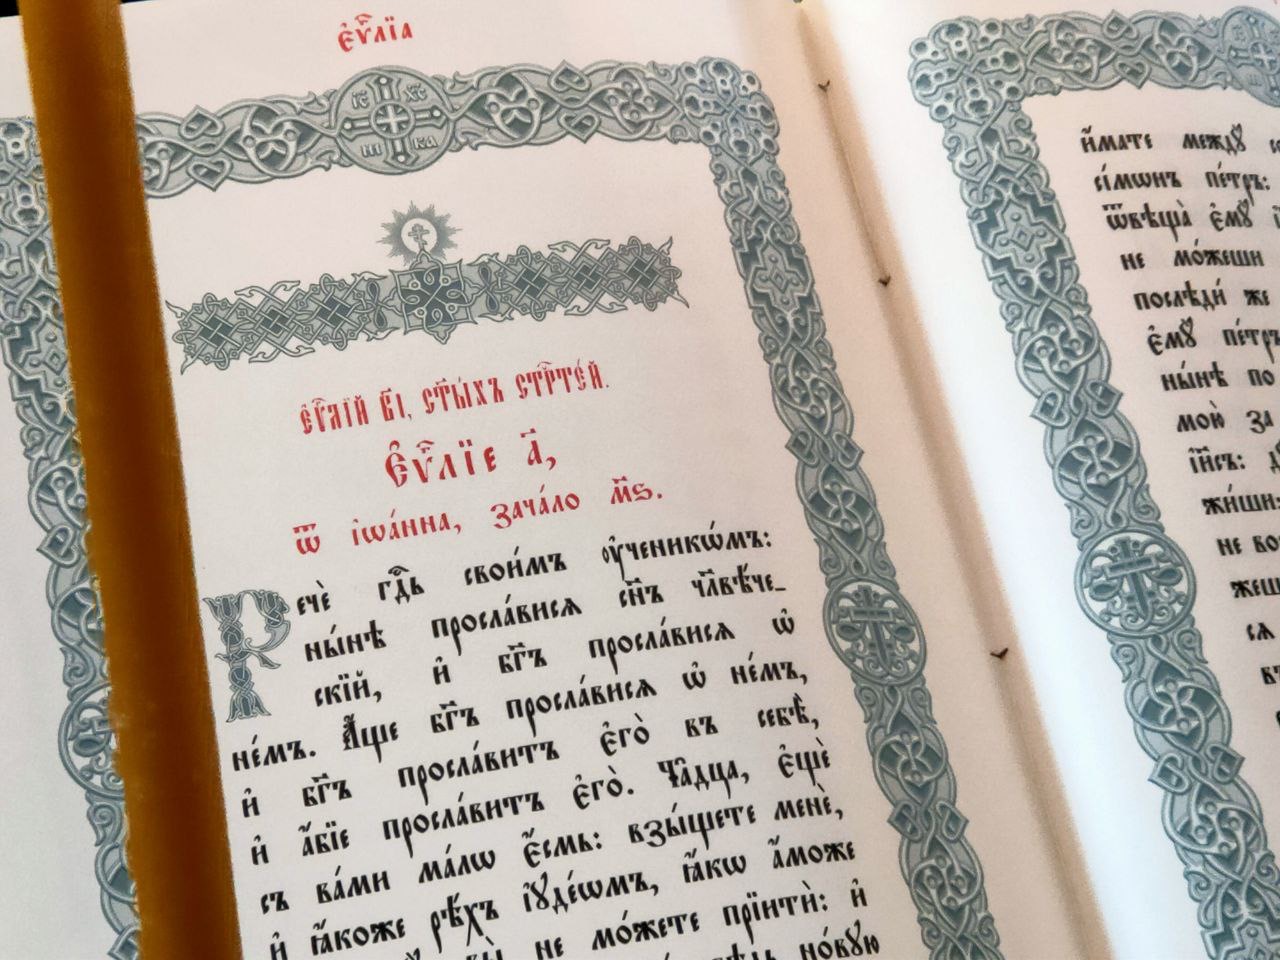 Є҆ѵⷢ҇лїа
І҆С ХС
НИ КА
Є҆ѵⷢ҇лїй в҃і, ст҃ы́хъ стрⷭ҇те́й.
Є҆ѵⷢ҇лїе а҃,
Ѿ і҆ѡа́нна, зача́ло м҃ѕ.
Речѐ гдⷭ҇ь свои̑мъ ᲂу҆ченикѡ́мъ:
ны́нѣ просла́висѧ сн҃ъ чл҃вѣ́че_
скїй, и҆ бг҃ъ просла́висѧ ѡ҆
не́мъ. А҆́ще бг҃ъ просла́висѧ ѡ҆ не́мъ,
и҆ бг҃ъ просла́витъ є҆го̀ въ себѣ̀,
и҆ а҆́бїе просла́витъ є҆го̀. Ча̑дца, є҆щѐ
съ ва́ми ма́лѡ є҆́смь: взы́щете менѐ,
и҆ ꙗ҆́коже рѣ́хъ і҆ꙋде́ѡмъ, ꙗ҆́кѡ а҆́може
не мо́жете прїитѝ: и҆
но́вꙋю
и҆́мате междꙋ̀
сі́мѡнъ пе́тръ:
ѿвѣща̀ є҆мꙋ̀
не мо́жеши
послѣди́ же
є҆мꙋ̀ пе́тръ
ны́нѣ по
мою̀ за
і҆и҃съ:
не
сѧ